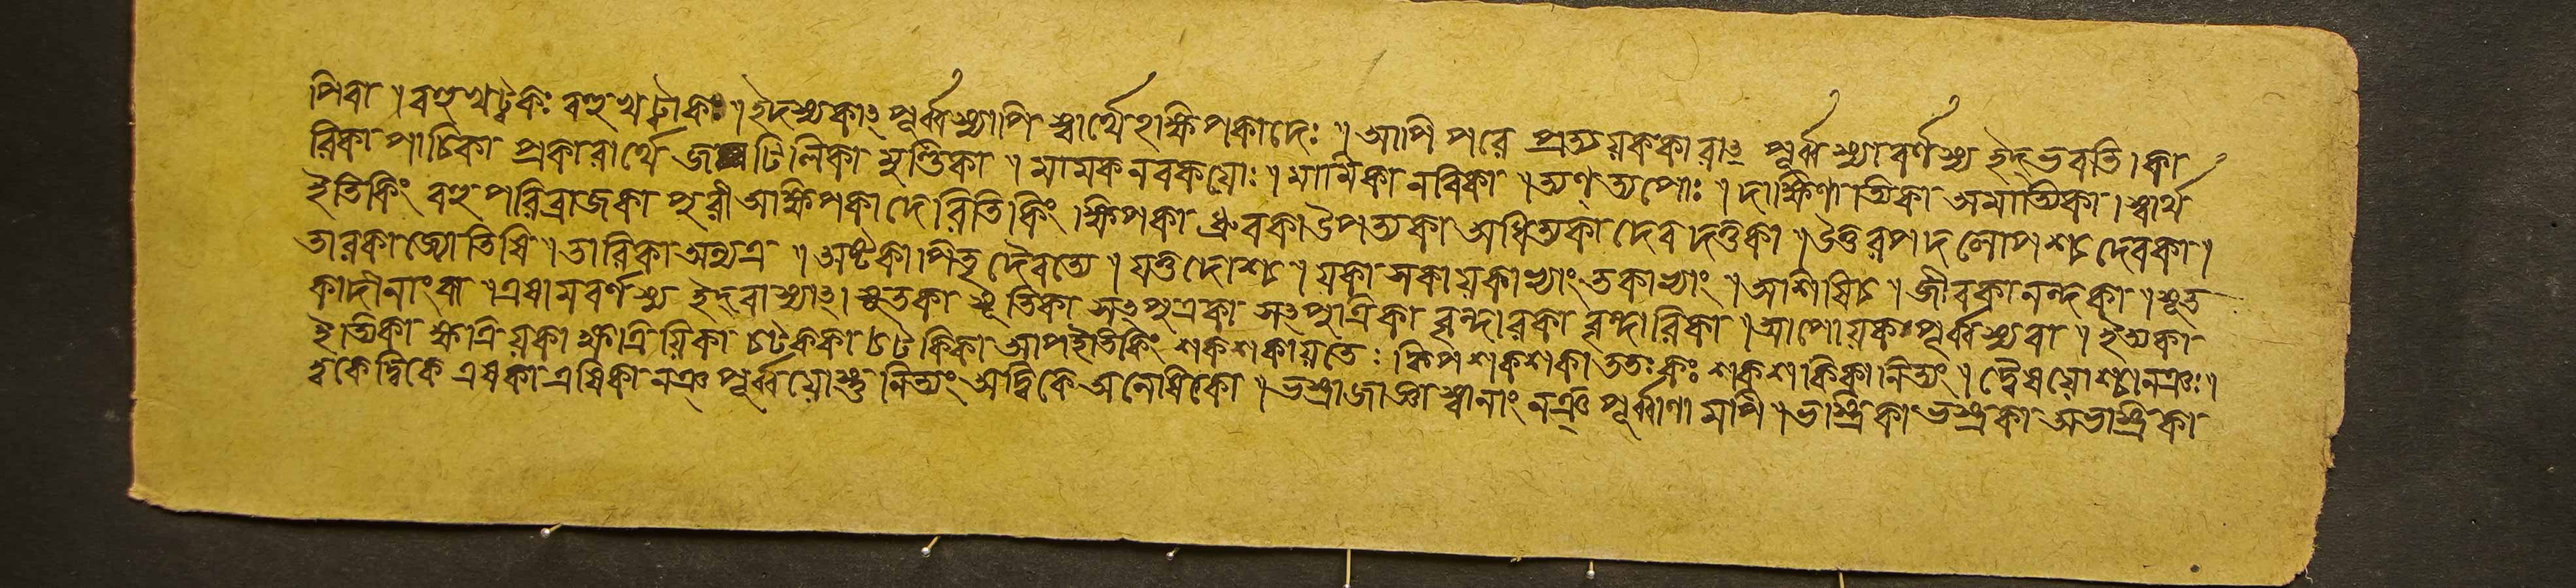 পিবা । বহুখট্বকঃ বহুখট্বাকঃ । ইদস্যকাৎ পূর্ব্বস্যাপি স্বার্থেহাক্ষিপকাদেঃ । আপি পরে প্রত্যয়ককারাৎ পূর্ব্বস্যাবর্ণস্য ইদ্ভবতি । কা
রিকা পাচিকা প্রকারার্থে জটিলিকা মুণ্ডিকা । মামকনবকয়োঃ । মামিকা নবিকা । ত্যণ্ত্যপোঃ । দাক্ষিণাত্যিকা অমাত্যিকা । স্বার্থ
ইতিকিং বহুপরিব্রাজকা পুরী আক্ষিপকাদেরিতিকিং । ক্ষিপকা ধ্রুবকা উপত্যকা অধিত্যকা দেবদত্তকা । উত্তরপদলোপশ্চ দেবকা ।
তারকা জ্যোতিষি । তারিকা অন্যত্র । অষ্টকা পিতৃদৈবত্যে । যত্তদোশ্চ । যকা সকা যকাভ্যাং তকাভ্যাং । আশিষিচ । জীবকা নন্দকা । সূত
কাদীনাংবা । এষামবর্ণস্য ইদ্বাস্যাৎ । সূতকা সূতিকা সৎপুত্রকা সৎপুত্রিকা বৃন্দারকা বৃন্দারিকা । আপোযকঃপূর্ব্বস্যবা । ইভ্যকা
ইভ্যিকা ক্ষত্রিয়কা ক্ষত্রিয়িকা চটককা চটকিকা আপইতিকিং শকশকায়তেঃ ক্বিপ শকশকা ততঃকঃ শকশকিকা নিত্যং । দ্বৈষয়োশ্চানঞঃ ।
দ্বকেদ্বিকে এষকা এষিকা নঞ্ পূর্ব্বয়োস্তু নিত্যং অদ্বিকে অনেষিকা । ভস্ত্রাজাজ্ঞাস্বানাং নঞ্ পূর্ব্বাণামাপি । ভস্ত্রিকা ভস্ত্রকা অভস্ত্রিকা